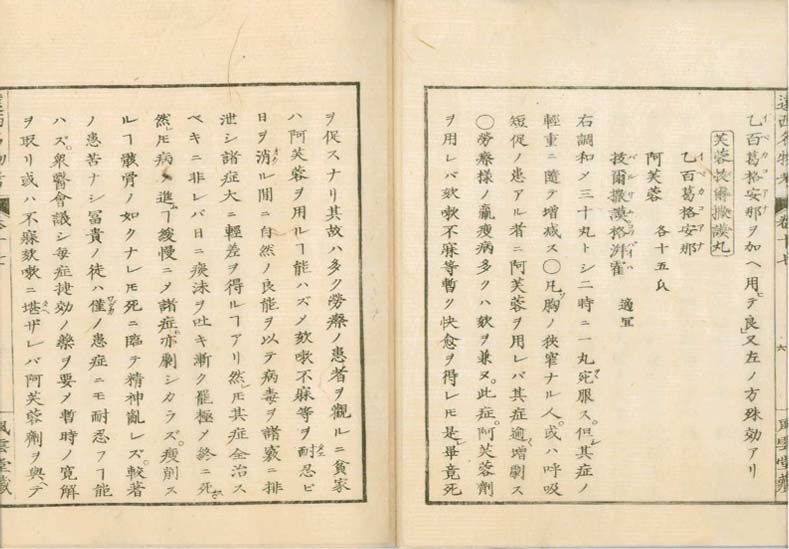 遠西名物考 卷十七 六 風雲堂藏
乙百葛格安那ヲ加ヘ用テ良又左ノ方殊効アリ
芙蓉拔爾撒謨丸
乙百葛格安那
阿芙蓉 各十五氏
拔爾撒謨格湃霍 適宜
右調和メ三十丸トシ二時ニ一丸宛服ス。但其症ノ
輕重ニ隨テ増減ス〇凡胸ノ狹窄ナル人。或ハ呼吸
短促ノ患アル者ニ阿芙蓉ヲ用レバ其症逾増劇ス
〇勞瘵様ノ羸瘦病多クハ欬ヲ兼ヌ。此症。阿芙蓉劑
ヲ用レバ欬嗽不寐等暫ク快愈ヲ得レモ是畢竟死
ヲ促スナリ其故ハ多ク勞瘵ノ患者ヲ觀ルニ貧家
ハ阿芙蓉ヲ用ルヿ能ハズメ欬嗽不寐等ヲ耐忍ビ
日ヲ消ル間ニ自然ノ良能ヲ以テ病毒ヲ諸竅ニ排
泄シ諸症大ニ輕差ヲ得ルヿアリ然レモ其症全治ス
ベキニ非レバ日ニ痰沫ヲ吐キ漸ク罷極メ終ニ死ス
然レモ病ノ進ムヿ緩慢ニメ諸症亦劇シカラズ。瘦削ス
ルヿ骸骨ノ如クナレモ死ニ臨テ精神亂レズ。較著
ノ患苦ナシ冨貴ノ徒ハ僅ノ患症ニモ耐忍フヿ能
ハズ。衆醫會議シ毎症捷効ノ藥ヲ要メ暫時ノ寛解
ヲ取リ或ハ不寐欬嗽ニ堪ザレバ阿芙蓉劑ヲ與ヘテ
風雲堂藏